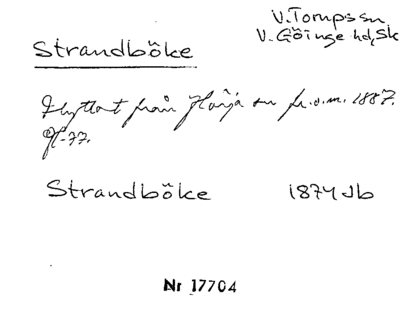 V. Torups sn
V. Göinge hd, Sk
Strandböke
Flyttat från Hörja sn fr.o.m. 1887.
Gf. 77.
Strandböke 1874 Jb
Nr 17704